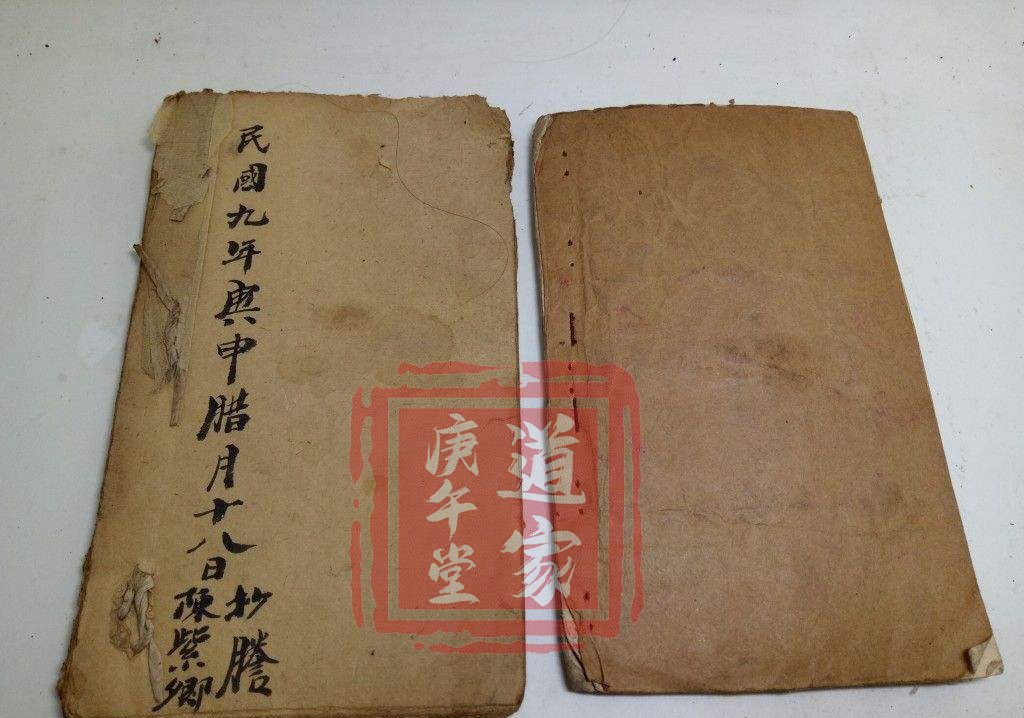 民國九年庚申腊月十八日
抄謄
陳紫卿
道家
庚午堂